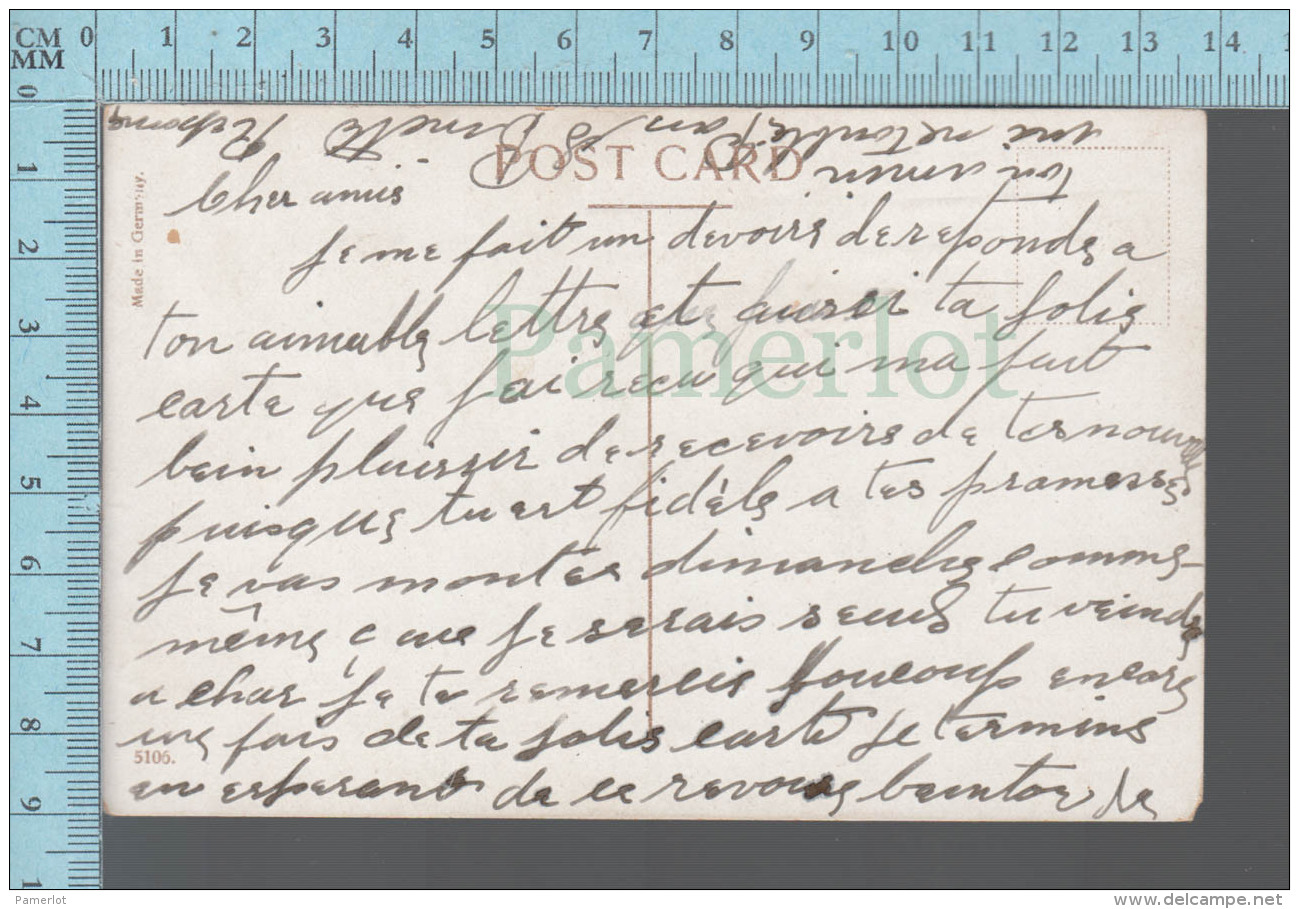 CM 0 1 2 3 4 5 6 7 8 9 10 11 12 13 14
MM
0 1 2 3 4 5 6 7 8 9 1
POST CARD
Made in Germany.
Cher amis
Je me fait un devoirs de reponde a
ton aimable lettre et aussi ta jolie
carte que j'ai recu qui ma fait
bein plaissir de recevoirs de tes nouvelle
puisque tu est fidèle a tes promesses
Je vas monter dimanche comme
même que je serais seul tu veindra
a char Je te remercie boucoup encore
une fois de ta jolie carte je termine
en esperant de ce revoire beintot de
ton amie
une
Reponse
5106.
Pamerlot
Pamerlot
www.delcampe.net